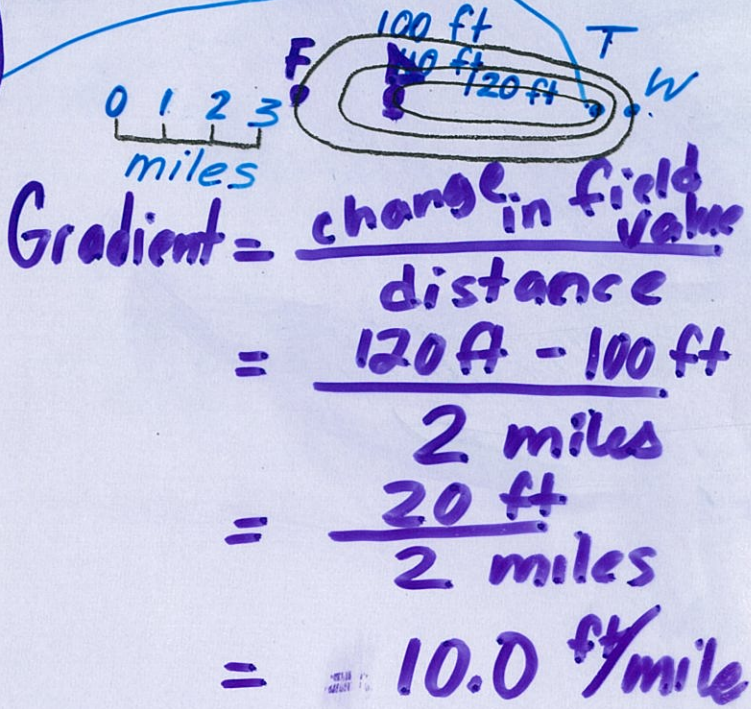 100 ft
F T
110 ft
120 ft W
0 1 2 3
miles
Gradient = change in field value
distance
= 120 ft - 100 ft
2 miles
= 20 ft
2 miles
= 10.0 ft/mile